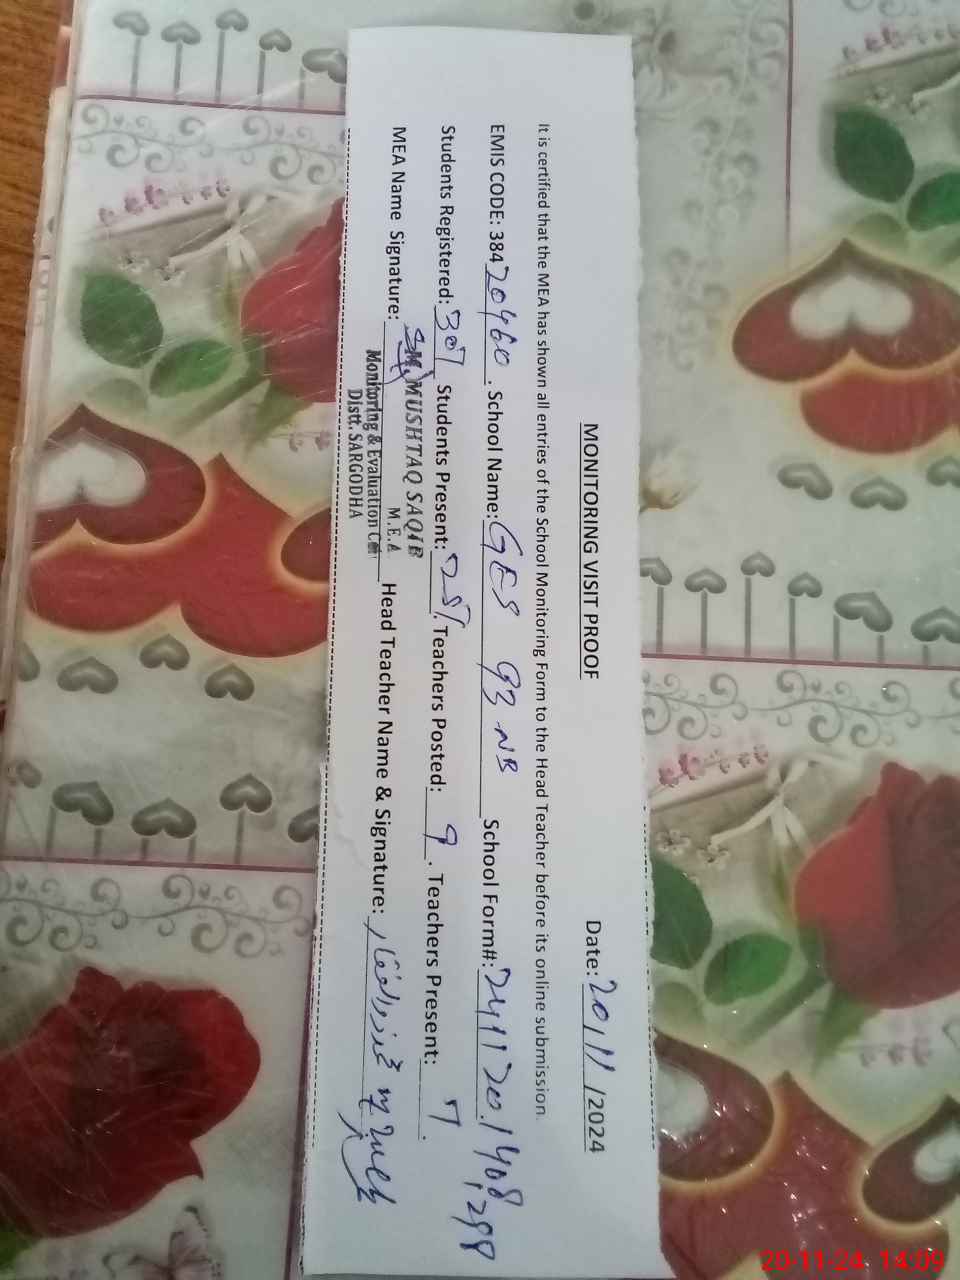 MONITORING VISIT PROOF Date: 20/11/2024
It is certified that the MEA has shown all entries of the School Monitoring Form to the Head Teacher before its online submission.
EMIS CODE: 38420460. School Name: GES 93 NB School Form#: 241120.1408,298
Students Registered: 307 Students Present: 287. Teachers Posted: 9. Teachers Present: 7.
MEA Name Signature: M. MUSHTAQ SAQIB Head Teacher Name & Signature: محمد ذوالفقار
M.E.A
Monitoring & Evaluation
Distt. SARGODHA
20-11-24 14:09